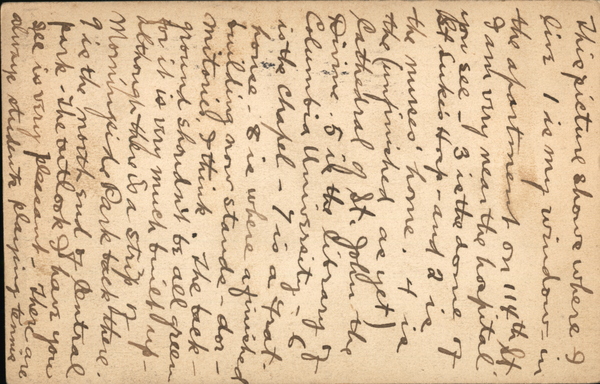 This picture shows where I
live 1 is my window - in
the apartment on 114th St
I am very near the hospital
you see - 3 is the dome of
St Lukes Hosp - and 2 is
the nurses' home. 4 is
the (unfinished as yet)
Cathedral of St. John the
Divine 5 is the library of
Columbia University - 6
is the chapel - 7 is a frat-
house - 8 is where a finished
building now stands - dor-
mitories, I think. The back-
ground shouldn't be all green
for it is very much built up -
although there is a strip of
Morningside Park back there.
9 is the north end of Central
park - The outlook I have you
see is very pleasant - There are
always students playing tennis